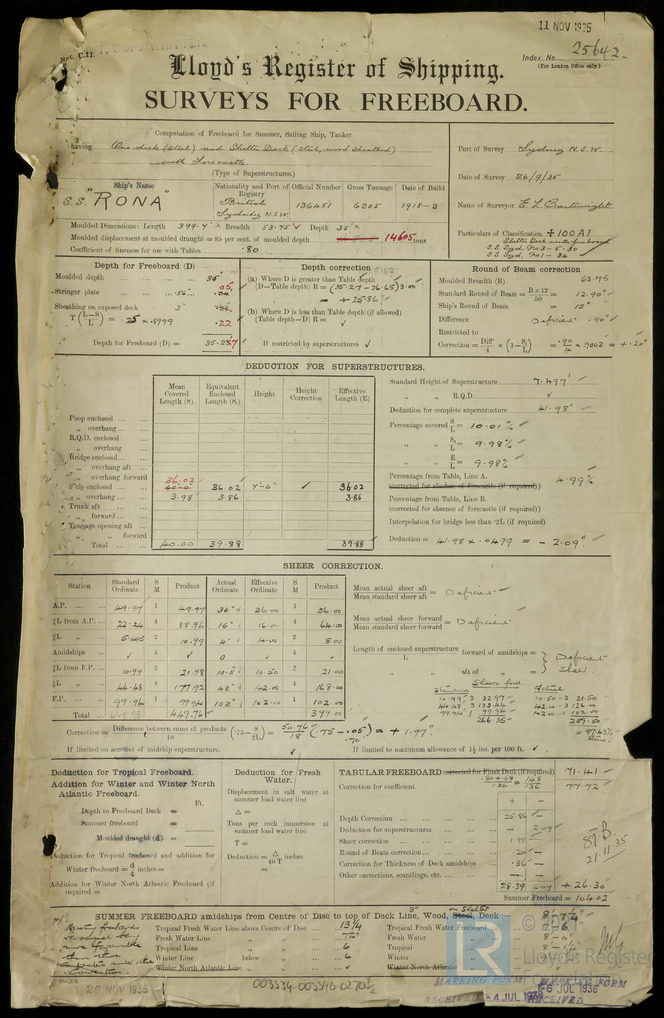 11 NOV 1935
Index. No. 25642
(For London Office only.)
Lloyd's Register of Shipping.
SURVEYS FOR FREEBOARD.
Computation of Freeboard for Summer, Sailing Ship, Tanker
having One deck (steel) and Shelter Deck (steel, wood sheathed)
with Forecastle
(Type of Superstructures.)
Port of Survey Sydney N.S.W
Date of Survey 26/9/35
Name of Surveyor E L Cartwright
Particulars of Classification +100A1
Shelter Deck with freeboard
S.S. Syd. No 3-5-30
S.S. Syd. No 1-34
Ship's Name
S.S. "RONA"
Nationality and Port of Registry
British
Sydney N.S.W.
Official Number
136451
Gross Tonnage
6205
Date of Build
1918-3
Moulded Dimensions: Length 399.7' Breadth 53.75' Depth 35'
Moulded displacement at moulded draught = 85 per cent. of moulded depth 14605 tons
Coefficient of fineness for use with Tables .80
Depth for Freeboard (D)
Moulded depth 35'
Stringer plate .05
Sheathing on exposed deck 3"
T (L-S/L) = .25 x .8999 .22
Depth for Freeboard (D) = 35.27
Depth correction
(a) Where D is greater than Table depth
(D-Table depth) R = (35.27-26.65)3.00
= +25.86"
(b) Where D is less than Table depth (if allowed)
(Table depth-D) R =
If restricted by superstructures
Round of Beam correction
Moulded Breadth (B) 53.75
Standard Round of Beam = B×12/50 = 12.90"
Ship's Round of Beam = 12"
Difference Deficient .90"
Restricted to
Correction = Diff/4 × (1-S1/L) = .90/4 x .9002 = +.20"
DEDUCTION FOR SUPERSTRUCTURES.
Mean Covered Length (S)
Equivalent Enclosed Length (S1)
Height
Height Correction
Effective Length (E)
Poop enclosed
" overhang
R.Q.D. enclosed
" overhang
Bridge enclosed
" overhang aft
" overhang forward
F'cle enclosed 36.02 36.02 7'-6" 36.02
" overhang 3.98 3.86 3.86
Trunk aft
" forward
Tonnage opening aft
" forward
Total 40.00 39.88 39.88
Standard Height of Superstructure 7.497'
" " R.Q.D.
Deduction for complete superstructure 41.98"
Percentage covered S/L = 10.01%
" " S1/L = 9.98%
" " E/L = 9.98%
Percentage from Table, Line A. 4.99%
(corrected for absence of forecastle (if required))
Percentage from Table, Line B.
(corrected for absence of forecastle (if required))
Interpolation for bridge less than .2L (if required)
Deduction = 41.98 x .0499 = -2.09"
SHEER CORRECTION.
Station Standard Ordinate S M Product Actual Ordinate Effective Ordinate S M Product
A.P. 49.97 1 49.97 36" 36.00 1 36.00
⅙L from A.P. 22.24 4 88.96 16" 16.00 4 64.00
⅓L " 5.495 2 10.99 4" 4.00 2 8.00
Amidships 4 0 4
⅓L from F.P. 10.99 2 21.98 10.5" 10.50 2 21.00
⅙L " 44.48 4 177.92 42" 42.00 4 168.00
F.P. 99.94 1 99.94 102" 102.00 1 102.00
Total 449.76 399.00
Mean actual sheer aft
Mean standard sheer aft = Deficient
Mean actual sheer forward
Mean standard sheer forward = Deficient
Length of enclosed superstructure forward of amidships =
L
" aft of " =
Deficient Sheer
Sheers for'd.
Standard Actual
10.99 3 32.97 10.50 3 31.50
44.48 3 133.44 42.00 3 126.00
99.94 1 99.94 102.00 1 102.00
266.35 259.50
= 97.43%
Correction = Difference between sums of products / 18 (.75 - S/2L) = 50.76/18 (.75-.05) = +1.97"
.70
If limited on account of midship superstructure.
If limited to maximum allowance of 1½ ins. per 100 ft.
Deduction for Tropical Freeboard.
Addition for Winter and Winter North
Atlantic Freeboard.
Ft.
Depth to Freeboard Deck =
Summer freeboard =
Moulded draught (d) =
Deduction for Tropical freeboard and addition for
Winter freeboard = d/4 inches =
Addition for Winter North Atlantic Freeboard (if
required =
Deduction for Fresh Water.
Displacement in salt water at
summer load water line
Δ =
Tons per inch immersion at
summer load water line
T =
Deduction = Δ/40T inches
=
TABULAR FREEBOARD corrected for Flush Deck (if required) 71.41
Correction for coefficient .80+.68/1.36 = 1.48/1.36 77.72
+ -
Depth Correction 25.86
Deduction for superstructures 2.09
Sheer correction 1.97
Round of Beam correction .20
Correction for Thickness of Deck amidships .36
Other corrections, scantlings, etc.
28.39 2.09 +26.30
Summer Freeboard = 104.02
21.11.35
SUMMER FREEBOARD amidships from Centre of Disc to top of Deck Line, Wood, Steel, Deck:
3" on Shelter
Tropical Fresh Water Line above Centre of Disc 13¼
Fresh Water Line " "
Tropical Line " " 6
Winter Line below " 6
Winter North Atlantic Line " "
Tropical Fresh Water Freeboard
Fresh Water "
Tropical "
Winter "
Winter North Atlantic "
26 NOV 1935
003334-003340-0270½
© Lloyd's Register
MARKING FORM
RECEIVED
-4 JUL 1936
-6 JUL 1936
RECEIVED